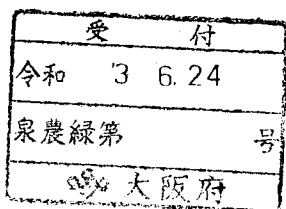 受 付
令和 '3 6.24
泉農緑第 号
大阪府